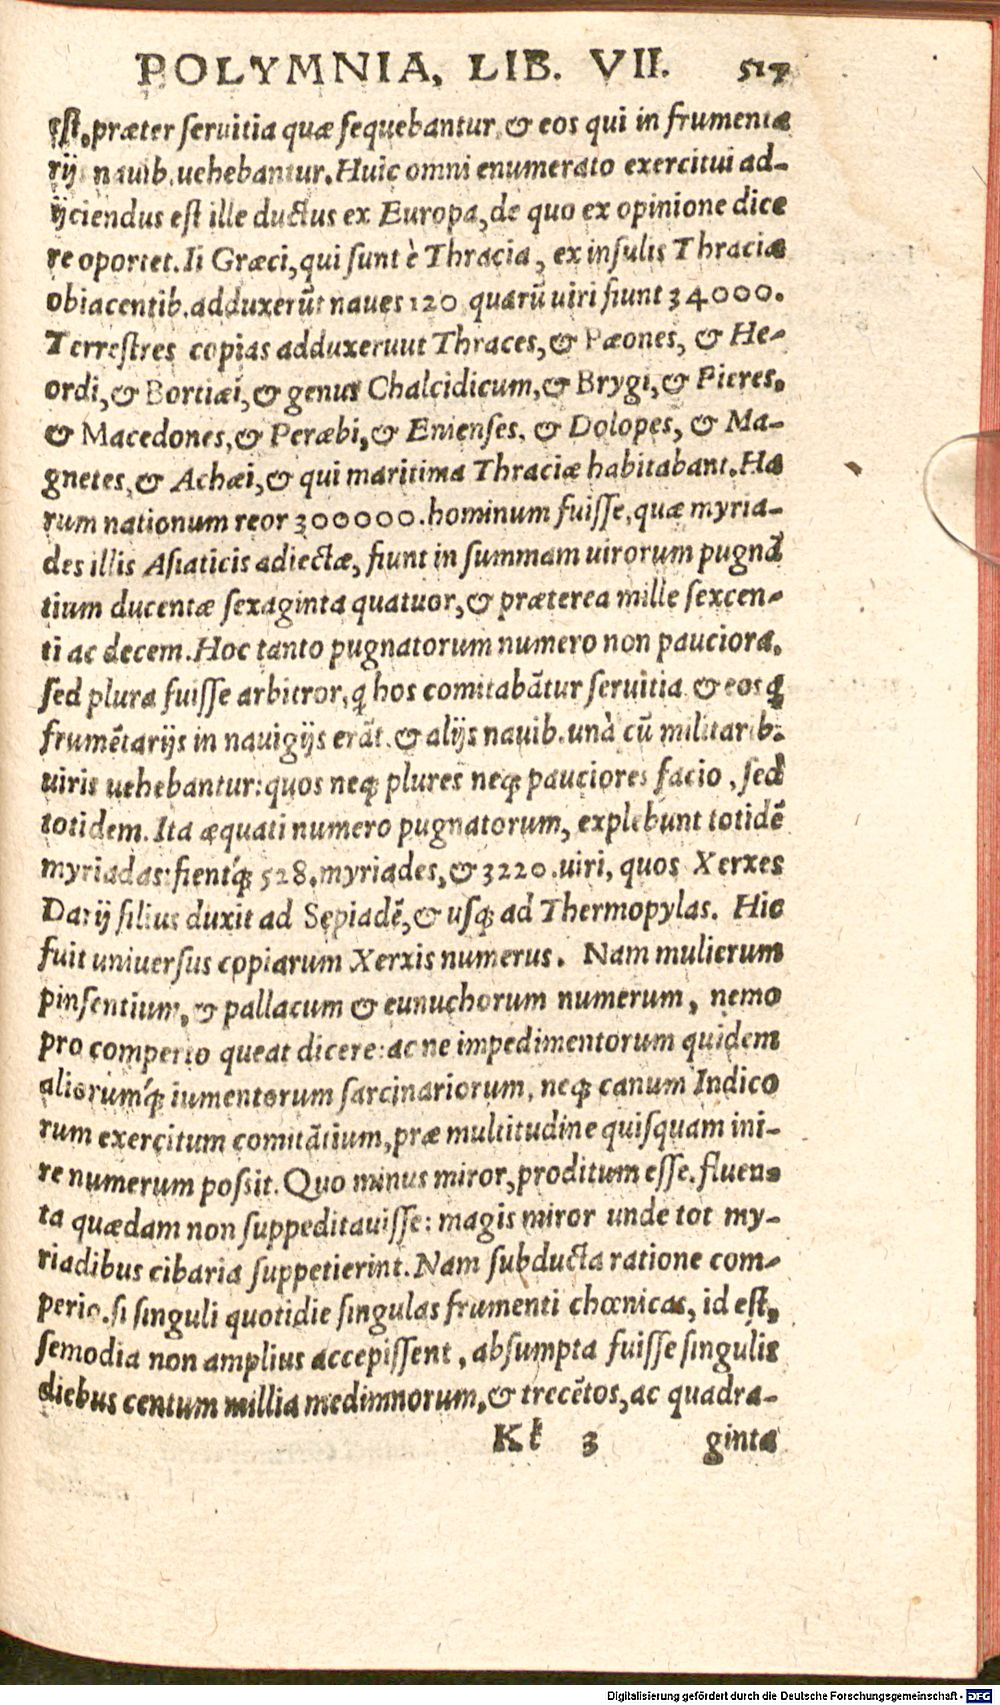 POLYMNIA, LIB. VII. 517
est, præter seruitia quæ sequebantur, & eos qui in frumenta
rijs nauib. uehebantur. Huic omni enumerato exercitui ad-
ijciendus est ille ductus ex Europa, de quo ex opinione dice
re oportet. Ii Græci, qui sunt è Thracia, ex insulis Thraciæ
obiacentib. adduxerūt naues 120 quarū uiri fiunt 34000.
Terrestres copias adduxeruut Thraces, & Pæones, & He-
ordi, & Bortiæi, & genus Chalcidicum, & Brygi, & Pieres,
& Macedones, & Peræbi, & Enienses, & Dolopes, & Ma-
gnetes, & Achæi, & qui maritima Thraciæ habitabant. Ha
rum nationum reor 300000. hominum fuisse, quæ myria-
des illis Asiaticis adiectæ, fiunt in summam uirorum pugnā
tium ducentæ sexaginta quatuor, & præterea mille sexcen-
ti ac decem. Hoc tanto pugnatorum numero non pauciora,
sed plura fuisse arbitror, ꝗ hos comitabātur seruitia & eos ꝗ
frumētarijs in nauigijs erāt, & alijs nauib. unà cū militarib.
uiris uehebantur: quos neqꝫ plures neqꝫ pauciores facio, sed
totidem. Ita æquati numero pugnatorum, explebunt totidē
myriadas: fientq́ꝫ 528. myriades, & 3220. uiri, quos Xerxes
Darij filius duxit ad Sepiadē, & usqꝫ ad Thermopylas. Hic
fuit uniuersus copiarum Xerxis numerus. Nam mulierum
pinsentium, & pallacum & eunuchorum numerum, nemo
pro comperto queat dicere: ac ne impedimentorum quidem
aliorumq́ꝫ iumentorum sarcinariorum, neqꝫ canum Indico
rum exercitum comitātium, præ multitudine quisquam ini-
re numerum possit. Quo minus miror, proditum esse, fluen-
ta quædam non suppeditauisse: magis miror unde tot my-
riadibus cibaria suppetierint. Nam subducta ratione com-
perio, si singuli quotidie singulas frumenti chœnicas, id est,
semodia non amplius accepissent, absumpta fuisse singulis
diebus centum millia medimnorum, & trecētos, ac quadra-
Kk 3 ginta
Digitalisierung gefördert durch die Deutsche Forschungsgemeinschaft - DFG